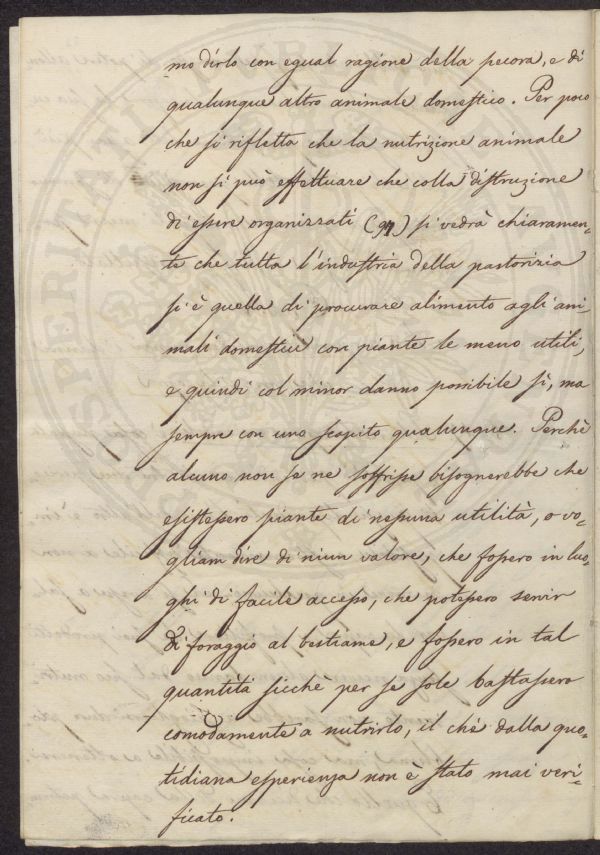 mo dirlo con egual ragione della pecora, e di
qualunque altro animale domestico. Per poco
che si rifletta che la nutrizione animale
non si può effettuare che colla distruzione
di esseri organizzati (94) si vedrà chiaramen-
te che tutta l'industria della pastorizia
si è quella di procurare alimento agli ani-
mali domestici con piante le meno utili,
e quindi col minor danno possibile sì, ma
sempre con uno scapito qualunque. Perchè
alcuno non se ne soffrisse bisognerebbe che
esistessero piante di nessuna utilità, o vo-
gliam dire di niun valore, che fossero in luo-
ghi di facile accesso, che potessero servir
di foraggio al bestiame, e fossero in tal
quantità sicchè per se sole bastassero
comodamente a nutrirlo, il chè dalla quo-
tidiana esperienza non è stato mai veri-
ficato.